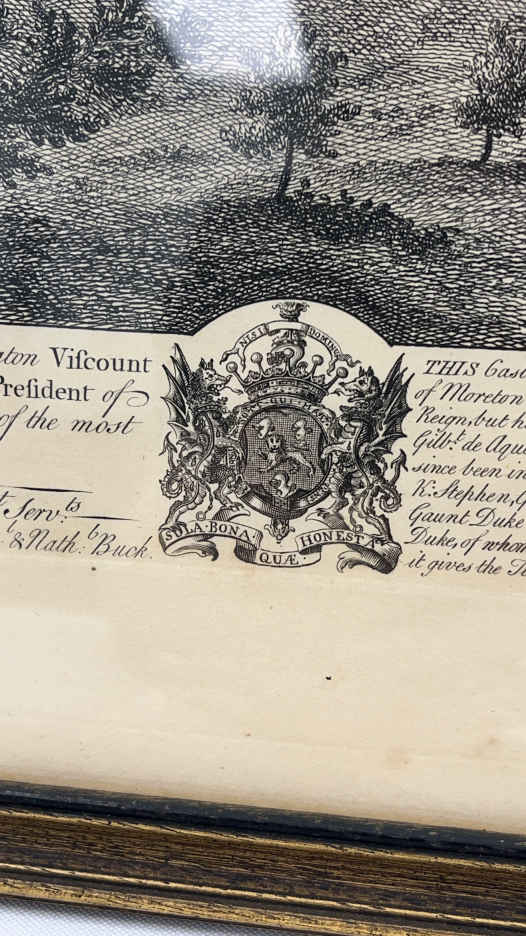 aton Viſcount
Preſident of
of the most
t Serv.ts
l & Nath: b Buck.
NISI DOMINUS
SOLA · BONA · QUÆ · HONESTA
THIS Cast
of Moreton
Reign, but h
Gilb.t de Aqu
since been in
K: Stephen,
Gaunt Duke
Duke, of whom
it gives the T